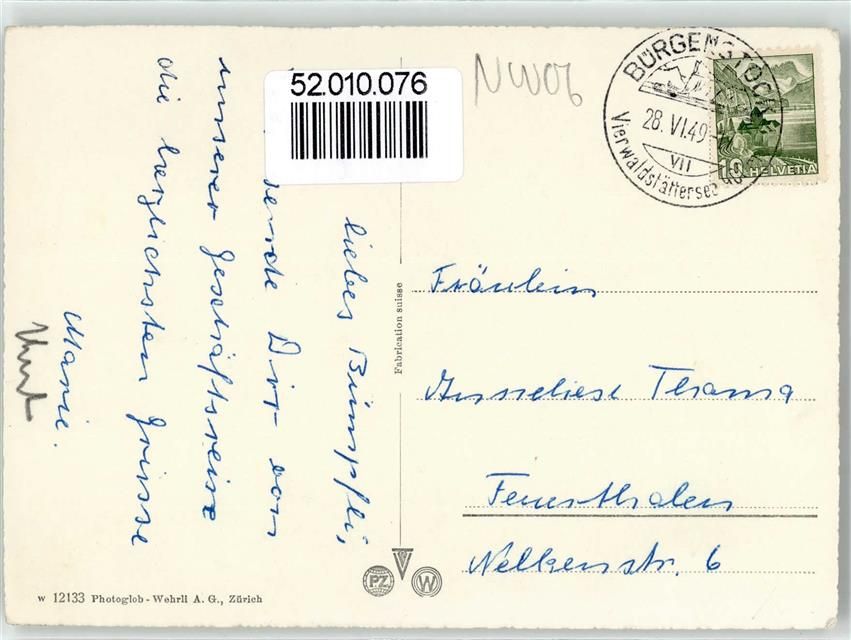 52.010.076
NW06
BÜRGENSTOCK
28. VI. 49
VII
Vierwaldstättersee
10 HELVETIA
liebes Bümpfli,
sende Dir von
unserer Geschäftsreise
die herzlichsten Grüsse
Marie.
Fabrication suisse
Fräulein
Anneliese
Feuerthalen
Nelkenstr. 6
PZ
W
w 12133 Photoglob-Wehrli A. G., Zürich